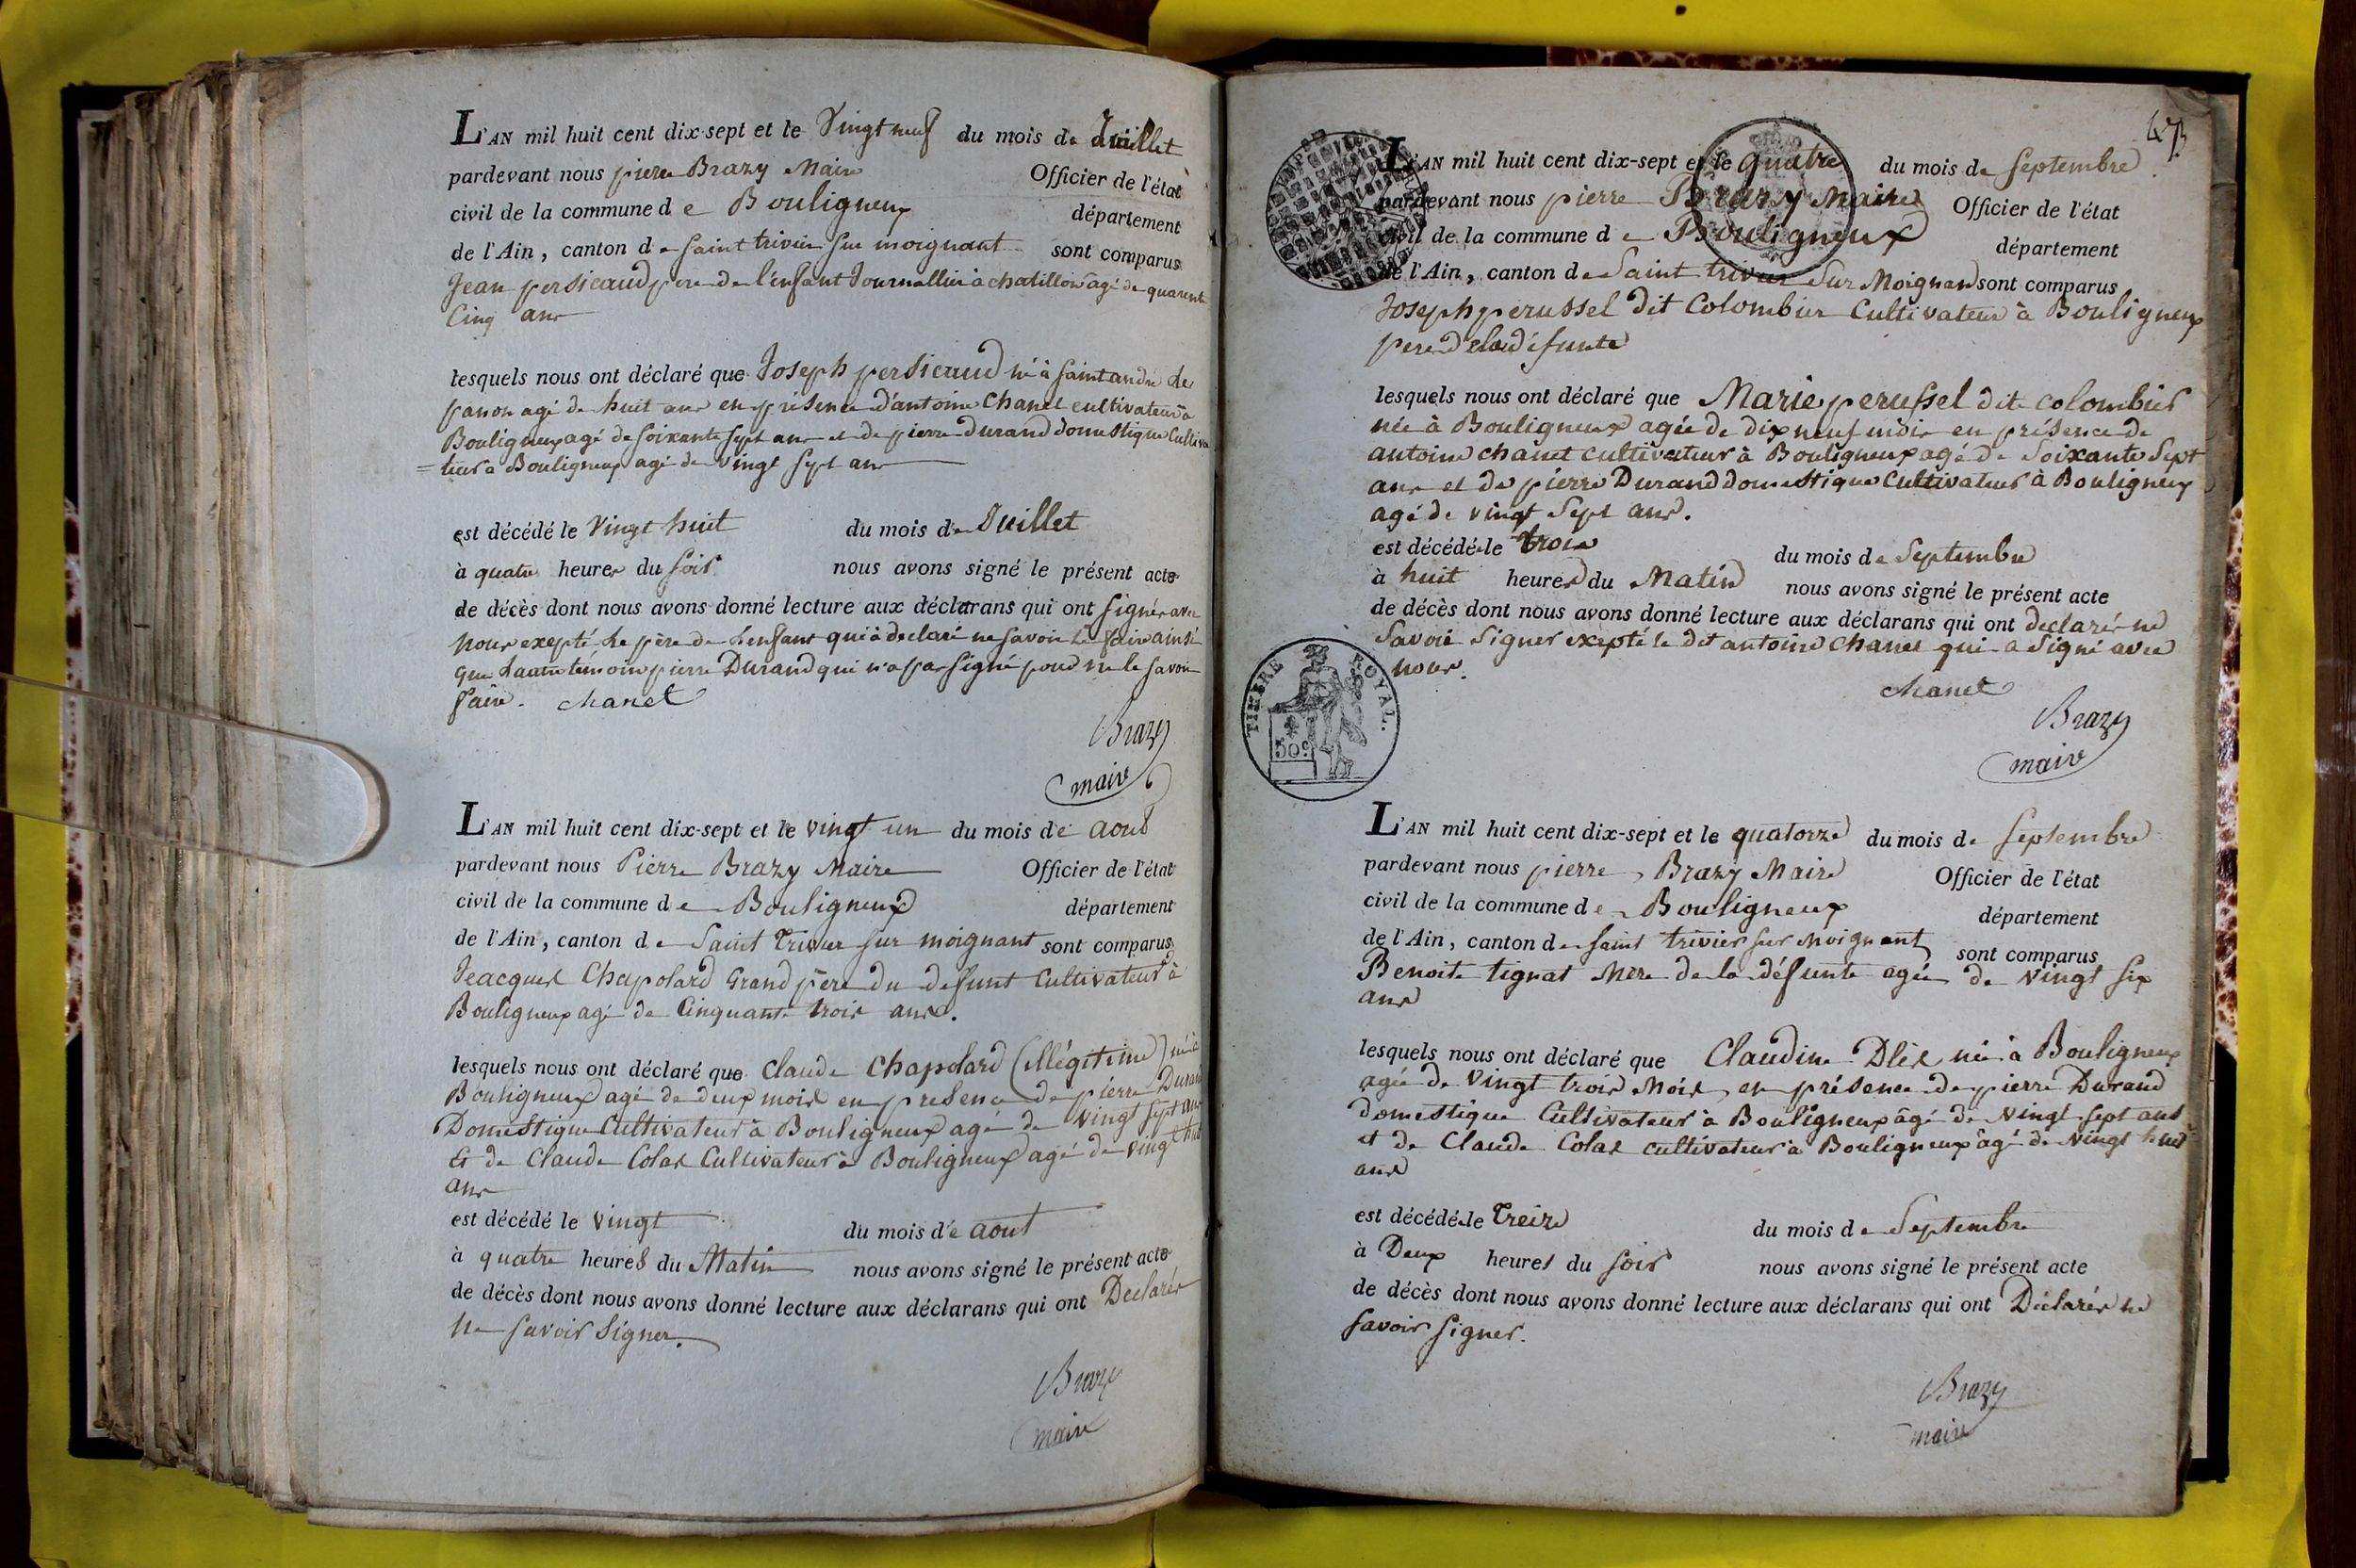 L'AN mil huit cent dix-sept et le Vingt neuf du mois de Juillet
pardevant nous pierre Brazy Maire Officier de l'état
civil de la commune d e Bouligneux département
de l'Ain, canton de saint trivier sur moignant sont comparus
Jean persicaud pere de l'enfant Journallier à chatillon agé de quarente
Cinq ans
lesquels nous ont déclaré que Joseph persicaud né à saint andré de
panon agé de huit ans en présence d'antoine Chanel cultivateur a
Bouligneux agé de soixante sept ans et de pierre durand domestique Cultiva
=teur a Bouligneux agé de Vingt sept ans
est décédé le Vingt huit du mois de Juillet
à quatre heures du soir nous avons signé le présent acte
de décès dont nous avons donné lecture aux déclarans qui ont signés avec
nous exepté le père de l'enfant qui à declaré ne savoir le faire ainsi
que l'autre témoin pierre Durand qui n'a pas signé pour ne le savoir
faire. chanel
Brazy
maire
L'AN mil huit cent dix-sept et le vingt un du mois de aout
pardevant nous Pierre Brazy Maire Officier de l'état
civil de la commune d e Bouligneux département
de l'Ain, canton de Saint trivier sur moignant sont comparus
Jeacques Chapolard Grand père du defunt Cultivateur à
Bouligneux agé de Cinquante trois ans.
lesquels nous ont déclaré que Claude Chapolard (illégitime) né à
Bouligneux agé de deux mois en presence de pierre Durand
Domestique Cultivateur à Bouligneux agé de vingt sept ans
Et de Claude Colas Cultivateur à Bouligneux agé de vingt huit
ans
est décédé le vingt du mois de aout
à quatre heures du Matin nous avons signé le présent acte
de décès dont nous avons donné lecture aux déclarans qui ont Declarés
ne savoir signer.
Brazy
maire
473
L'AN mil huit cent dix-sept et le quatre du mois de septembre
pardevant nous pierre Brazy Maire Officier de l'état
civil de la commune d e Bouligneux département
de l'Ain, canton de Saint trivier sur Moignand sont comparus
Joseph perussel dit Colombier Cultivateur à Bouligneux
pere de la défunte
lesquels nous ont déclaré que Marie perussel dite colombier
née à Bouligneux agée de dix neuf mois en présence de
antoine chanel cultivateur à Bouligneux agé de Soixante Sept
ans et de pierre Durand domestique Cultivateur à Bouligneux
agé de vingt Sept ans.
est décédée le trois du mois de Septembre
à huit heures du Matin nous avons signé le présent acte
de décès dont nous avons donné lecture aux déclarans qui ont declarés ne
Savoir Signer exepté le dit antoine Chanel qui a Signé avec
nous.
TIMBRE ROYAL.
50c
chanel
Brazy
maire
L'AN mil huit cent dix-sept et le quatorze du mois de Septembre
pardevant nous pierre Brazy Maire Officier de l'état
civil de la commune d e Bouligneux département
de l'Ain, canton de saint trivier sur Moignant sont comparus
Benoite tignat Mere de la défunte agée de vingt six
ans
lesquels nous ont déclaré que Claudine née à Bouligneux
agée de Vingt trois Mois en présence de pierre Durand
domestique Cultivateur à Bouligneux âgé de vingt sept ans
et de Claude Colas cultivateur à Bouligneux âgé de vingt huit
ans
est décédée le treize du mois de Septembre
à Deux heures du soir nous avons signé le présent acte
de décès dont nous avons donné lecture aux déclarans qui ont Déclarés ne
savoir signer.
Brazy
maire